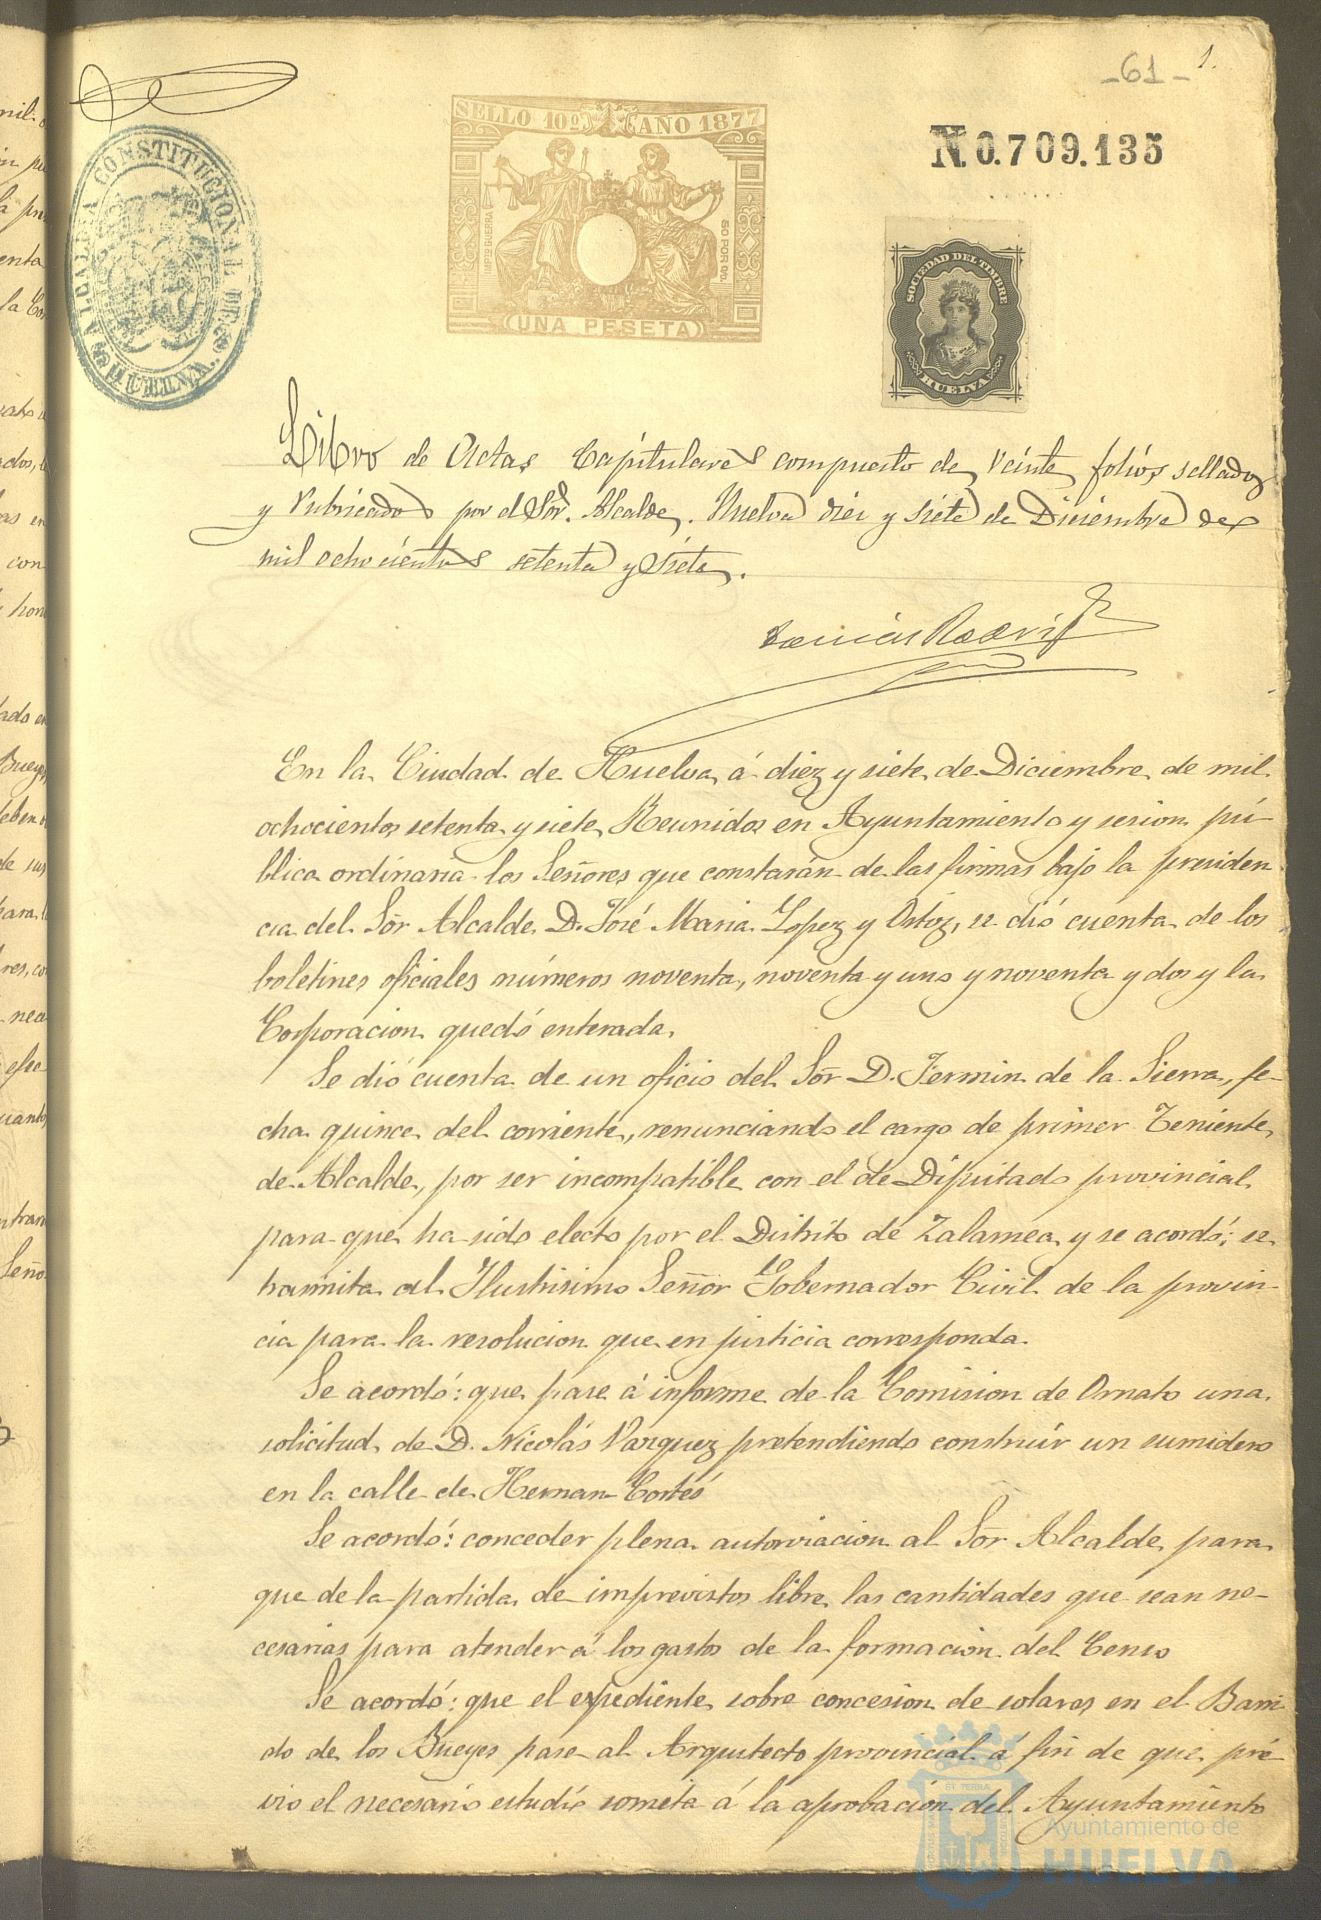 -61- 1.
SELLO 10º AÑO 1877
UNA PESETA
N.0.709.135
SOCIEDAD DEL TIMBRE
HUELVA
ALCALDIA CONSTITUCIONAL DE HUELVA
Libro de Actas Capitulares compuesto de veinte folios sellados
y rubricados por el Sor. Alcalde. Huelva diez y siete de Diciembre de
mil ochocientos setenta y siete.
En la Ciudad de Huelva á diez y siete de Diciembre de mil
ochocientos setenta y siete, Reunidos en Ayuntamiento y sesion pú-
blica ordinaria los Señores que constarán de las firmas bajo la presiden
cia del Sôr Alcalde D. José Maria Lopez y Ortiz, se dió cuenta de los
boletines oficiales números noventa, noventa y uno y noventa y dos y la
Corporacion quedó enterada.
Se dió cuenta de un oficio del Sôr D. Fermin de la Sierra, fe-
cha quince del corriente, renunciando el cargo de primer Teniente
de Alcalde, por ser incompatible con el de Diputado provincial
para que ha sido electo por el Distrito de Zalamea y se acordó: se
trasmita al Ilustrisimo Señor Gobernador Civil de la provin-
cia para la resolucion que en justicia corresponda.
Se acordó: que pase á informe de la Comision de Ornato una
solicitud de D. Nicolás Vazquez pretendiendo construir un sumidero
en la calle de Hernan Cortés
Se acordó: conceder plena autorizacion al Sôr Alcalde para
que de la partida de imprevistos libre las cantidades que sean ne-
cesarias para atender á los gastos de la formacion del Censo
Se acordó: que el expediente sobre concesion de solares en el Barri
do de los Bueyes pase al Arquitecto provincial á fin de que pré-
vio el necesario estudio someta á la aprobacion del Ayuntamiento
Ayuntamiento de
HUELVA